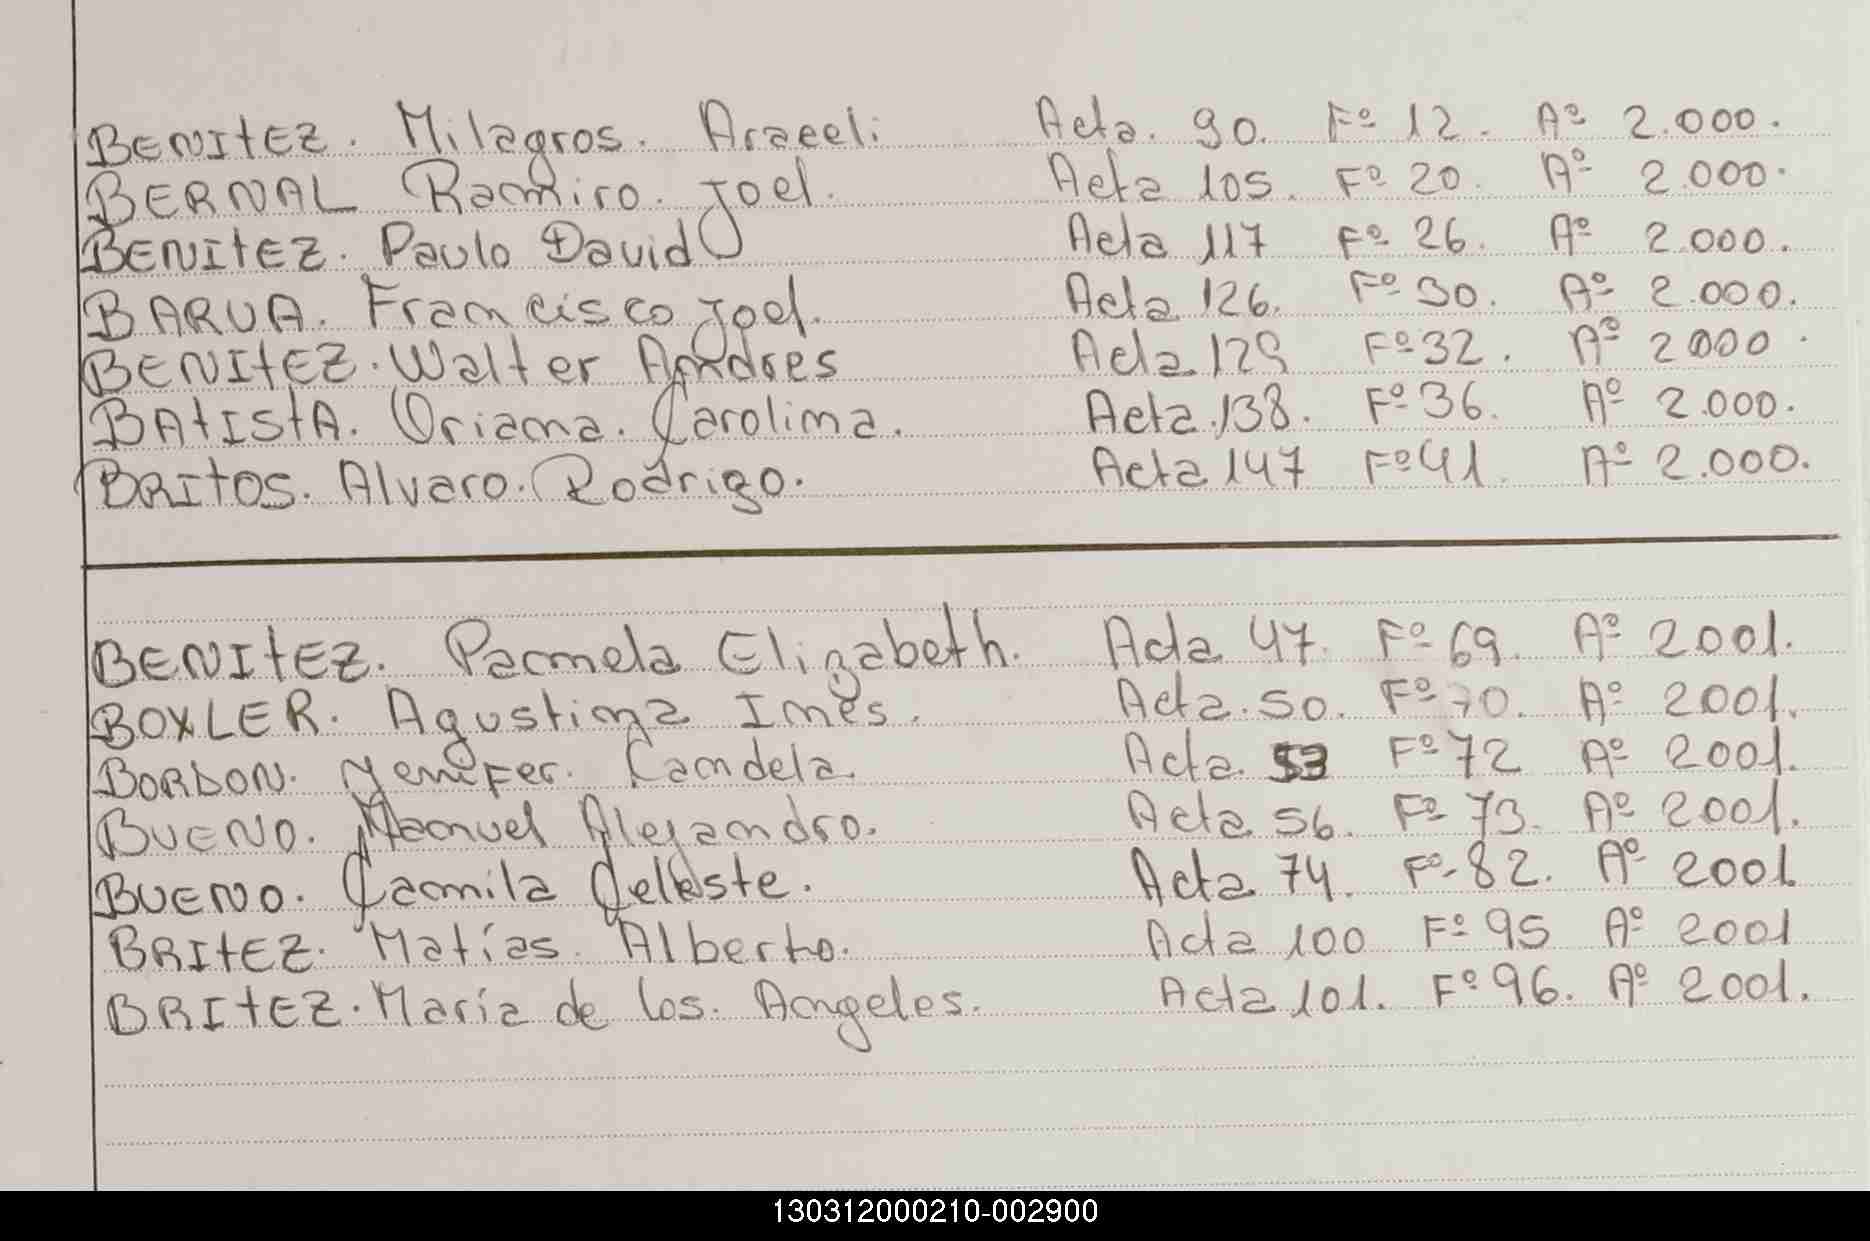 BENITEZ. Milagros. Araceli. Acta. 90. Fº 12. Aº 2.000.
BERNAL Ramiro. Joel. Acta 105. Fº 20. Aº 2.000.
BENITEZ. Paulo David Acta 117 Fº 26. Aº 2.000.
BARUA. Francisco Joel. Acta 126. Fº 30. Aº 2.000.
BENITEZ. Walter Andres Acta 129 Fº 32. Aº 2000.
BAtIStA. Oriana. Carolina. Acta. 138. Fº 36. Aº 2.000.
BRItOS. Alvaro. Rodrigo. Acta 147 Fº 41. Aº 2.000.
BENITEZ. Pamela Elizabeth. Acta 47. Fº 69. Aº 2001.
BOXLER. Agustina Inés. Acta. 50. Fº 70. Aº 2001.
BORDON. Yenifer. Candela. Acta. 53 Fº 72 Aº 2001.
BUENO. Manuel Alejandro. Acta 56. Fº 73. Aº 2001.
BUENO. Camila Celeste. Acta 74. Fº 82. Aº 2001.
BRItEZ. Matías. Alberto. Acta 100 Fº 95 Aº 2001
BRItEZ. María de los. Angeles. Acta 101. Fº 96. Aº 2001.
130312000210-002900